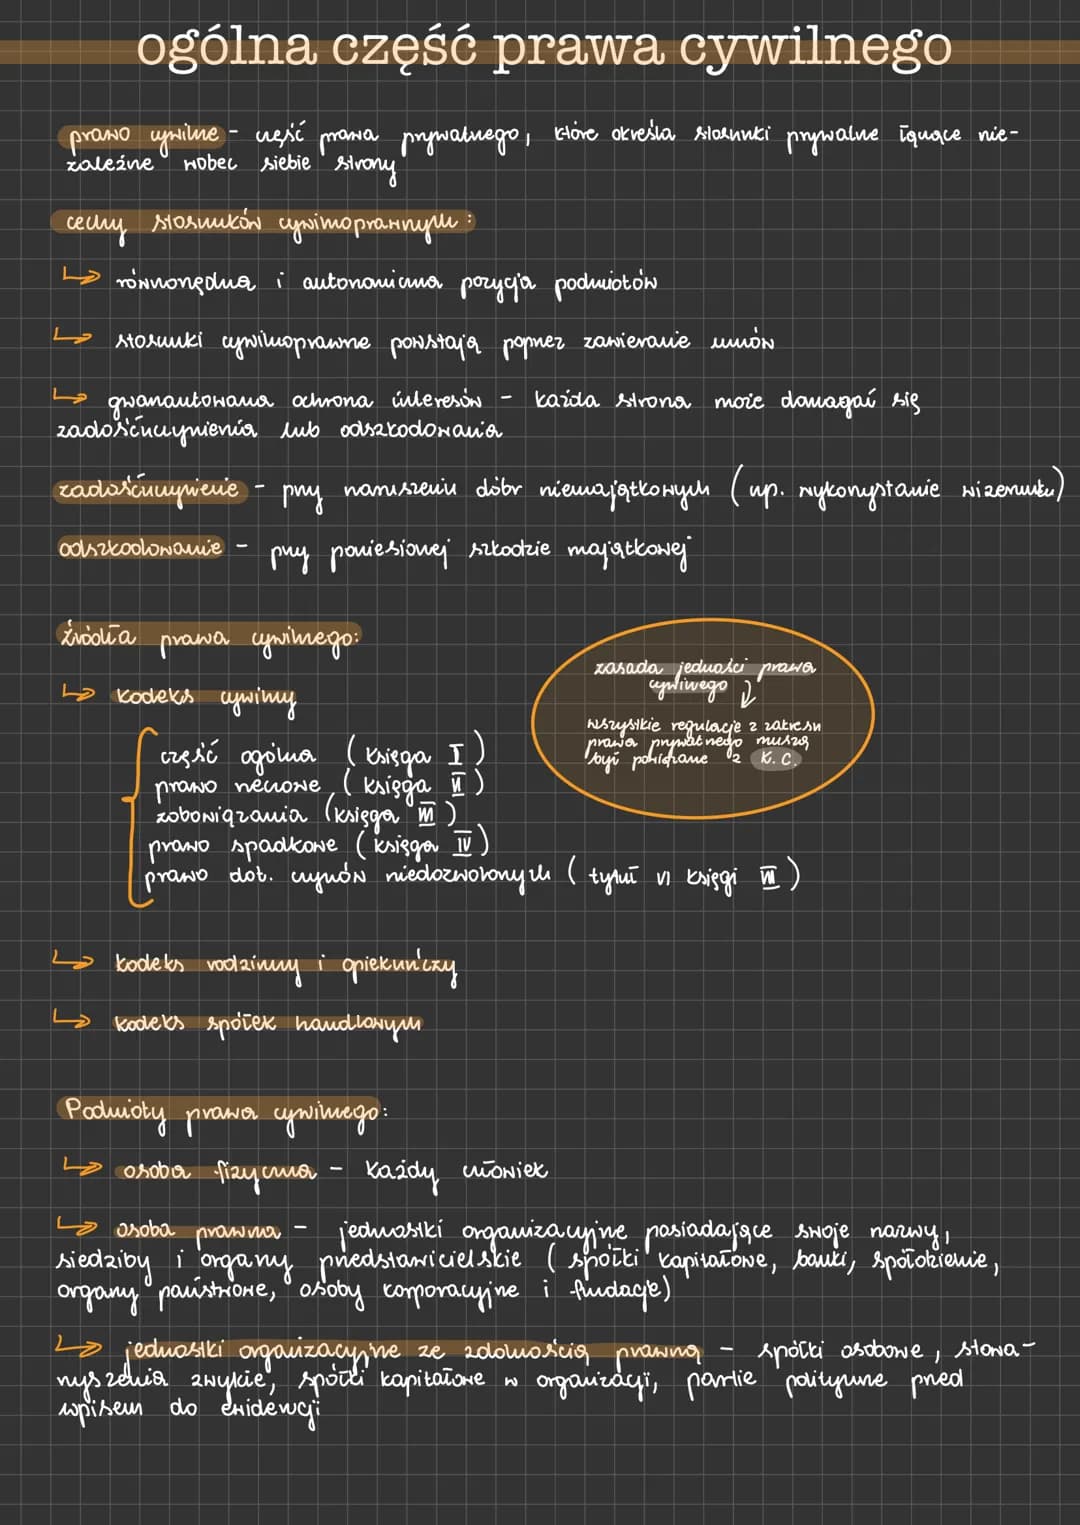 ogólna część prawa cywilnego
prawo cywilne - część prawa prywatnego, które określa stosunki prywatne łączące nie-
zależne wobec siebie strony
cechy stosunków cywilnoprawnych:
↳ równorzędna i autonomiczna pozycja podmiotów
↳ stosunki cywilnoprawne powstają poprzez zawieranie umów
↳ gwarantowana ochrona interesów - każda strona może domagać się
zadośćuczynienia lub odszkodowania
zadośćuczynienie - przy naruszeniu dóbr niemajątkowych (np. wykorzystanie wizerunku)
odszkodowanie - przy poniesionej szkodzie majątkowej
źródła prawa cywilnego:
↳ kodeks cywilny
część ogólna (księga I)
prawo rzeczowe (księga II)
zobowiązania (księga III)
prawo spadkowe (księga IV)
prawo dot. czynów niedozwolonych (tytuł VI księgi III)
zasada jedności prawa
cywilnego
wszystkie regulacje z zakresu
prawa prywatnego muszą
być powiązane z K.C.
↳ kodeks rodzinny i opiekuńczy
↳ kodeks spółek handlowych
Podmioty prawa cywilnego:
↳ osoba fizyczna - każdy człowiek
↳ osoba prawna - jednostki organizacyjne posiadające swoje nazwy,
siedziby i organy przedstawicielskie (spółki kapitałowe, banki, spółdzielnie,
organy państwowe, osoby korporacyjne i fundacje)
↳ jednostki organizacyjne ze zdolnością prawną - spółki osobowe, stowa-
rzyszenia zwykłe, spółki kapitałowe w organizacji, partie polityczne przed
wpisem do ewidencji